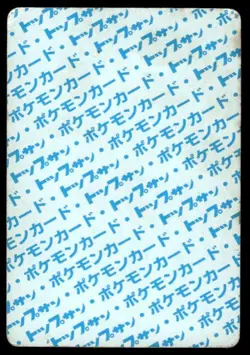 トップサン
ポケモンカード・トップサン
トップサン・ポケモンカード
ポケモンカード・トップサン
トップサン・ポケモンカード
ポケモンカード・トップサン
トップサン・ポケモンカード
ポケモンカード・トップサン
トップサン・ポケモンカード
ポケモンカード・トップサン
トップサン・ポケモンカード
ポケモンカード・トップサン
トップサン・ポケモンカード
ポケモンカード
トップサン